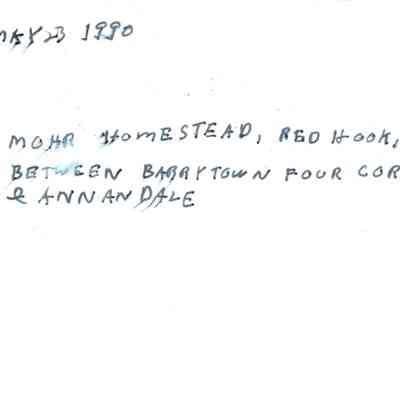 MAY 23 1990
MOHR HOMESTEAD, RED HOOK,
BETWEEN BARRYTOWN FOUR COR
& ANNANDALE